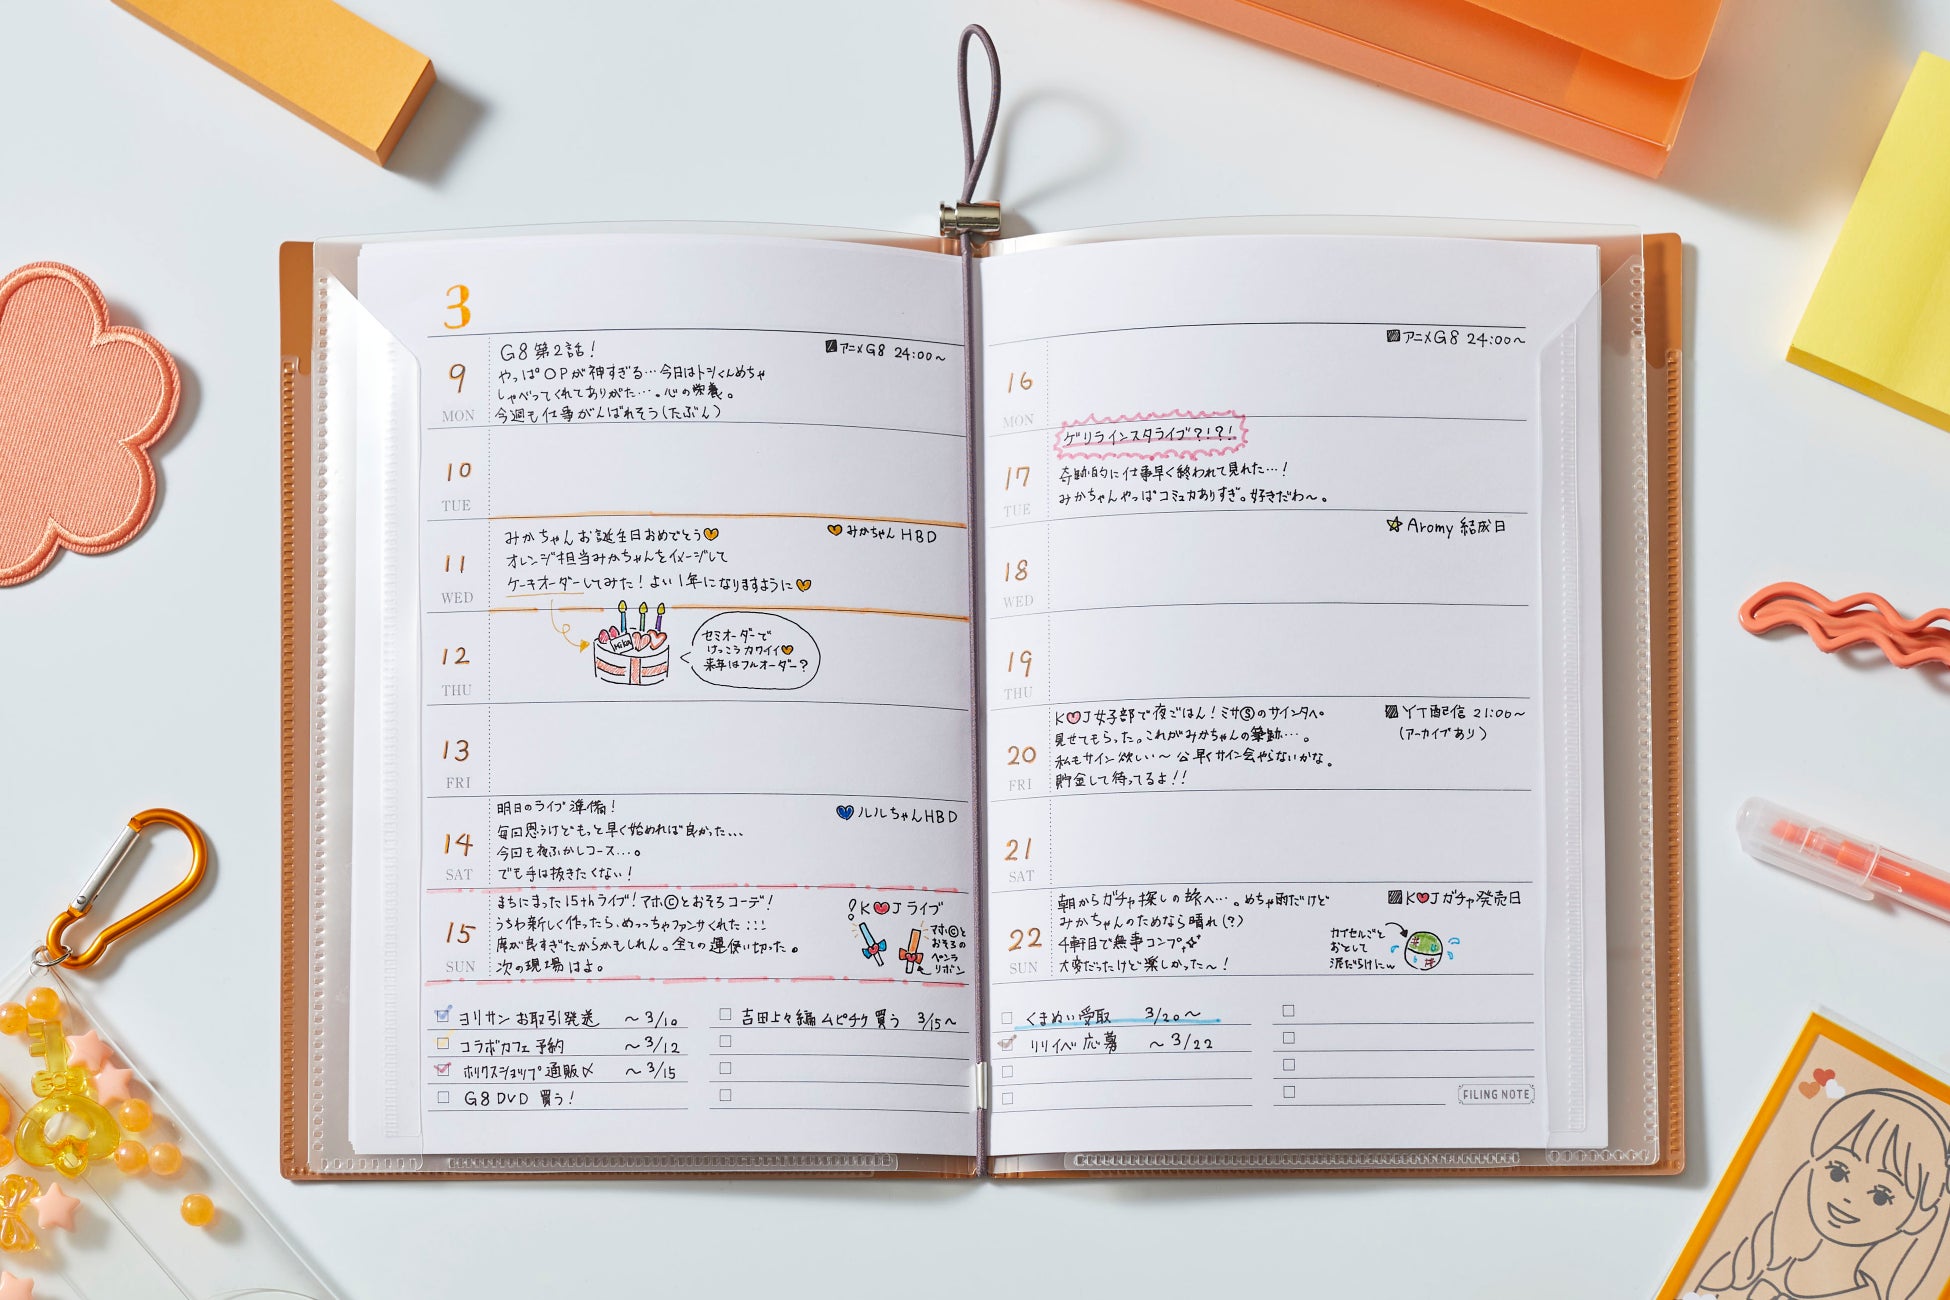 3
9
MON
G8 第2話!
やっぱOPが神すぎる…今日はトシくんめちゃ
しゃべってくれてありがた…。心の栄養。
今週も仕事がんばれそう(たぶん)
アニメG8 24:00~
10
TUE
11
WED
みかちゃんお誕生日おめでとう
オレンジ担当みかちゃんをイメージして
ケーキオーダーしてみた!よい1年になりますように
みかちゃんHBD
12
THU
Mika
セミオーダーで
けっこうカワイイ
来年はフルオーダー?
13
FRI
14
SAT
明日のライブ準備!
毎回思うけどもっと早く始めれば良かった...
今回も夜ふかしコース…。
でも手は抜きたくない!
ルルちゃんHBD
15
SUN
まちにまった15thライブ!アホ©とおそろコーデ!
うちわ新しく作ったら、めっちゃファンサくれた:::
席が良すぎたからかもしれん。全ての運使い切った。
次の現場はよ。
K♥Jライブ
アホ©と
おそろの
ペンラ
リボン
ヨリサンお取引発送 ~3/10
コラボカフェ予約 ~3/12
ホリクスショップ通販〆 ~3/15
G8 DVD 買う!
吉田上々編ムビチケ買う 3/15~
16
MON
アニメG8 24:00~
17
TUE
ゲリラインスタライブ?!?!
奇跡的に仕事早く終われて見れた…!
みかちゃんやっぱコミュカありすぎ。好きだわ~。
18
WED
Aromy 結成日
19
THU
20
FRI
K♥J女子部で夜ごはん!ミサⓈのサイン
見せてもらった。これがみかちゃんの筆跡…。
私もサイン欲しい~ 早くサイン会やらないかな。
貯金して待ってるよ!!
YT配信 21:00~
(アーカイブあり)
21
SAT
22
SUN
朝からガチャ探しの旅へ…。めちゃ雨だけど
みかちゃんのためなら晴れ(?)
4軒目で無事コンプ。
大変だったけど楽しかった~!
K♥Jガチャ発売日
カプセルごと
おとして
泥だらけにw
くまぬい受取 3/20~
リリイベ応募 ~3/22
FILING NOTE